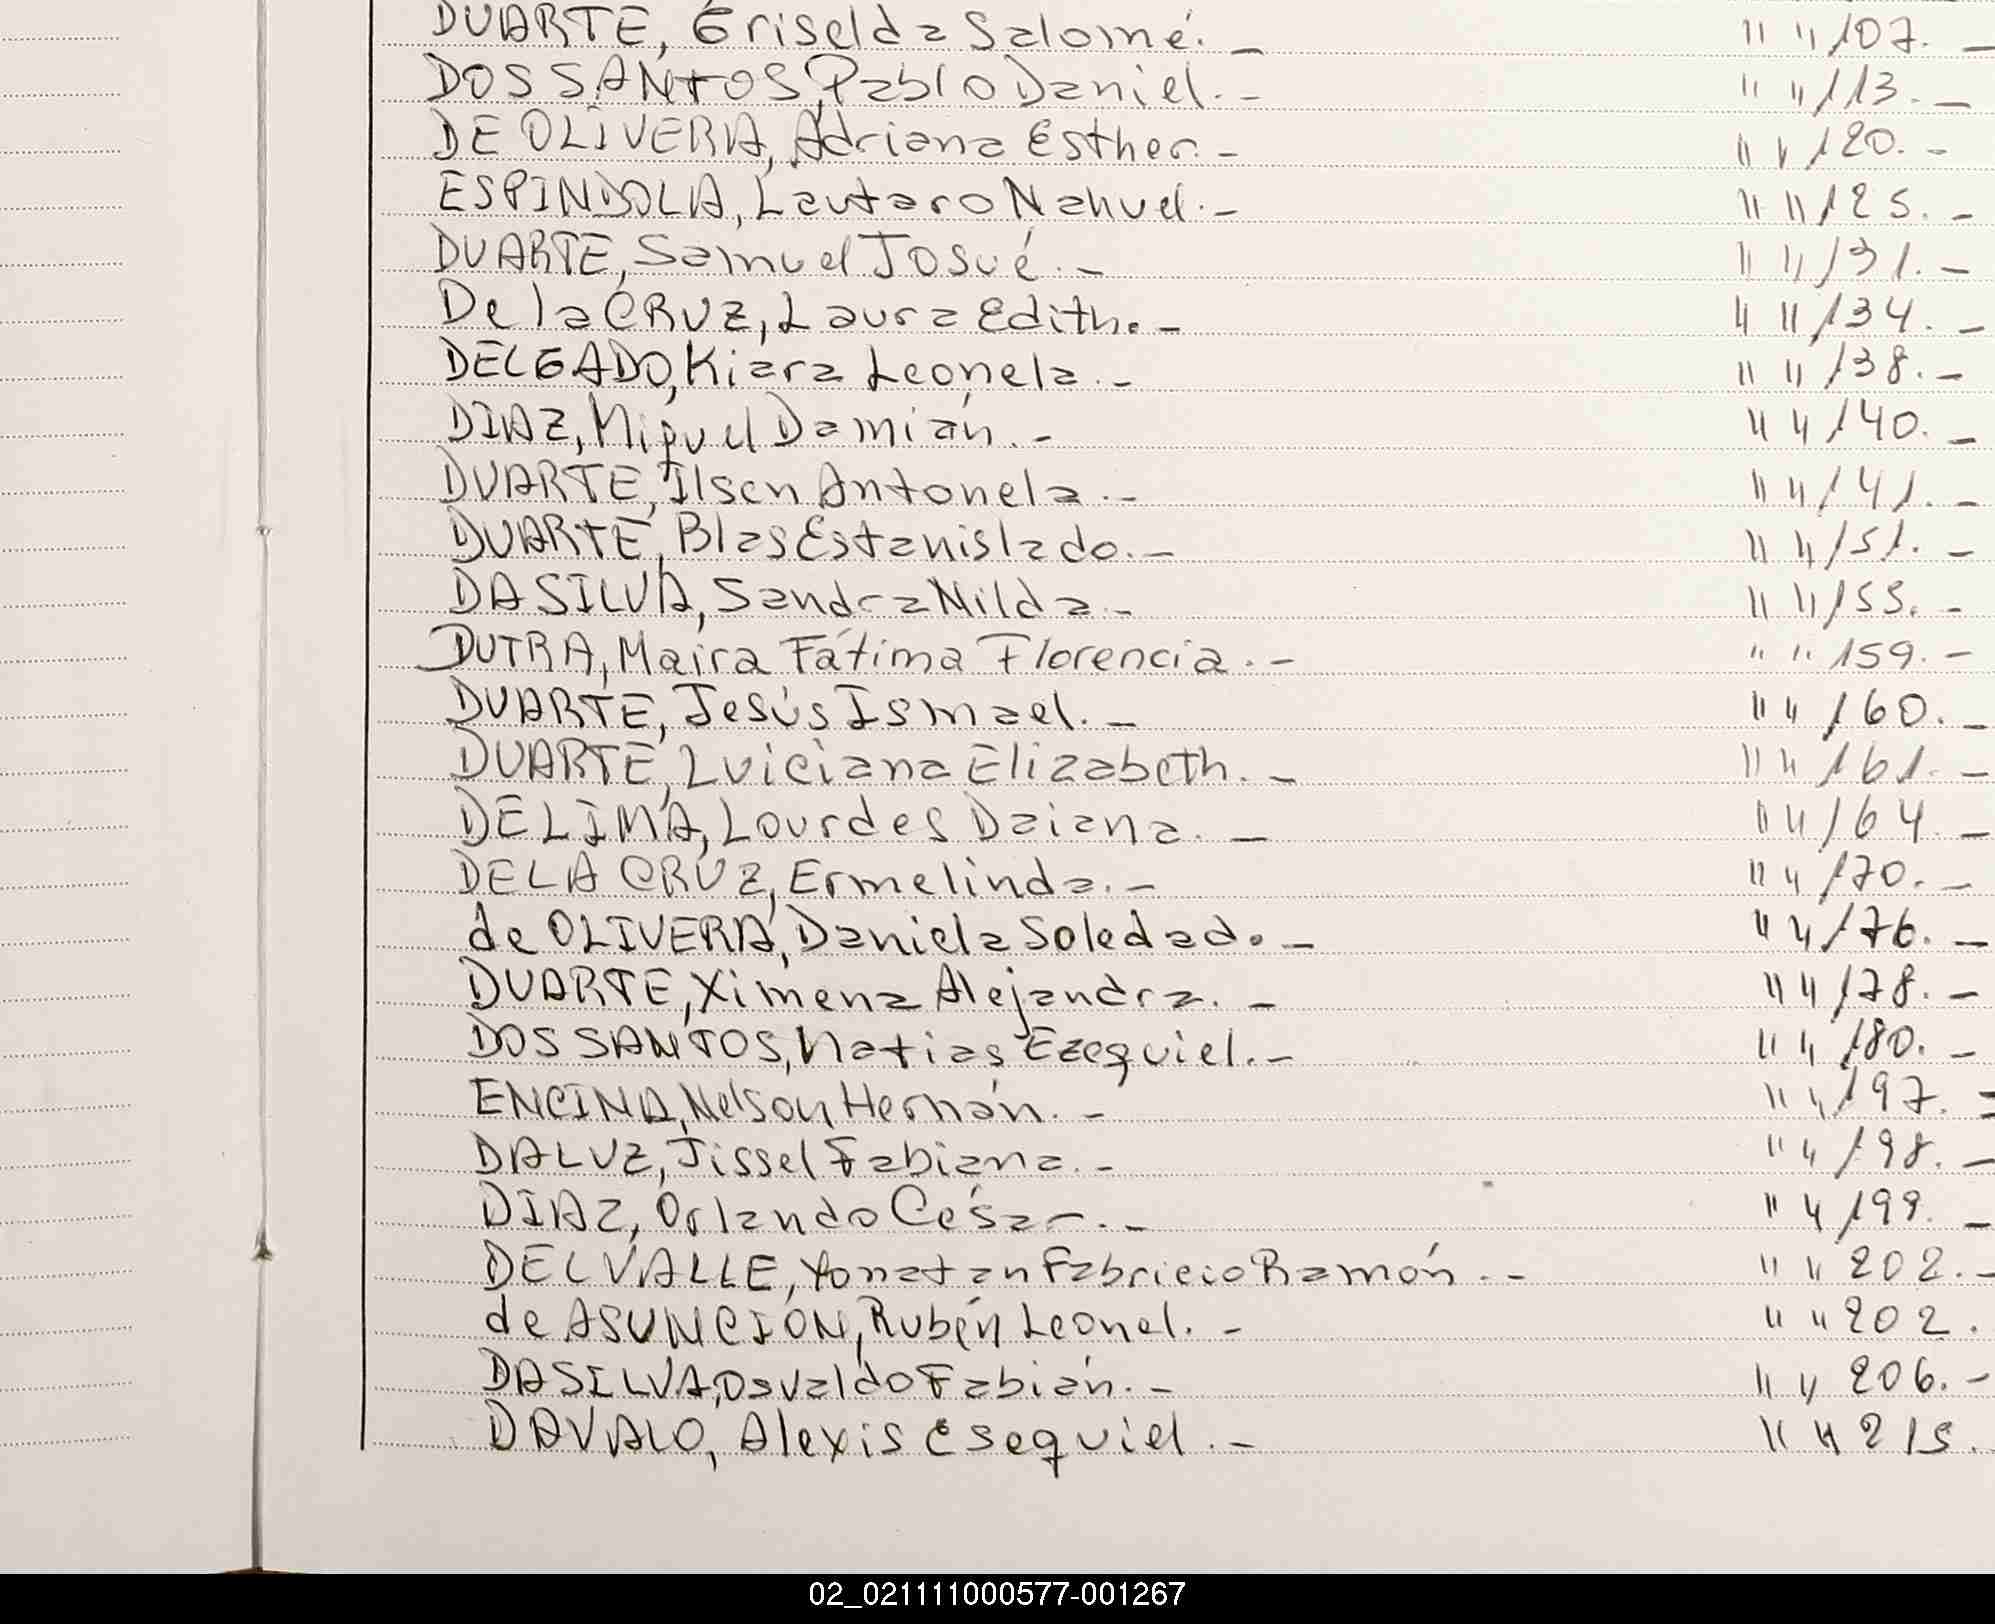 DUARTE, Griselda Salomé. — " " 107. —
DOS SANTOS, Pablo Daniel. — " " 113. —
DE OLIVERA, Adriana Esther. — " " 120. —
ESPINDOLA, Lautaro Nahuel. — " " 125. —
DUARTE, Samuel Josué. — " " 131. —
De la CRUZ, Laura Edith. — " " 134. —
DELGADO, Kiara Leonela. — " " 138. —
DIAZ, Miguel Damián. — " " 140. —
DUARTE, Ilsen Antonela. — " " 141. —
DUARTE, Blas Estanislado. — " " 151. —
DA SILVA, Sandra Nilda. — " " 153. —
DUTRA, Maira Fátima Florencia. — " " 159. —
DUARTE, Jesús Ismael. — " " 160. —
DUARTE, Luiciana Elizabeth. — " " 161. —
DE LIMA, Lourdes Daiana. — " " 164. —
DE LA CRUZ, Ermelinda. — " " 170. —
de OLIVERA, Daniela Soledad. — " " 176. —
DUARTE, Ximena Alejandra. — " " 178. —
DOS SANTOS, Matias Ezequiel. — " " 180. —
ENCINA, Nelson Hernán. — " " 197. =
DALUZ, Jissel Fabiana. — " " 198. —
DIAZ, Orlando César. — " " 199. —
DEL VALLE, Yonatan Fabricio Ramón. — " " 202. —
de ASUNCIÓN, Rubén Leonel. — " " 202.
DA SILVA, Osvaldo Fabián. — " " 206. —
DAVALO, Alexis Esequiel. — " " 215.
02_021111000577-001267